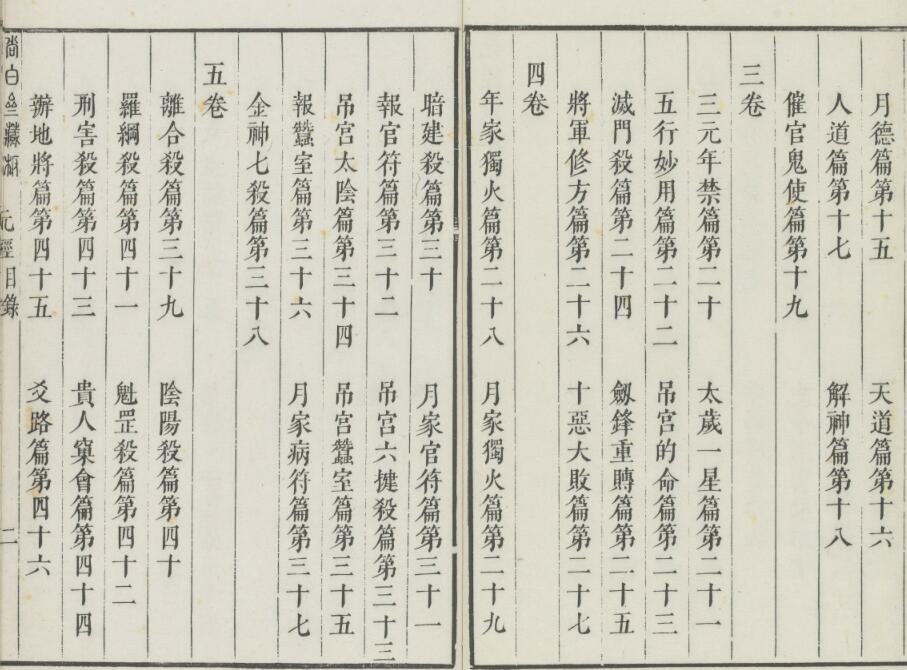 月德篇第十五　天道篇第十六
人道篇第十七　解神篇第十八
催官鬼使篇第十九
三卷
三元年禁篇第二十　太歲一星篇第二十一
五行妙用篇第二十二　吊宮的命篇第二十三
滅門殺篇第二十四　劔鋒重䏝篇第二十五
將軍修方篇第二十六　十惡大敗篇第二十七
四卷
年家獨火篇第二十八　月家獨火篇第二十九
暗建殺篇第三十　月家官符篇第三十一
報官符篇第三十二　吊宮六捷殺篇第三十三
吊宮太陰篇第三十四　吊宮蠶室篇第三十五
報蠶室篇第三十六　月家病符篇第三十七
金神七殺篇第三十八
五卷
離合殺篇第三十九　陰陽殺篇第四十
羅綱殺篇第四十一　魁罡殺篇第四十二
刑害殺篇第四十三　貴人窠會篇第四十四
辦地將篇第四十五　爻路篇第四十六
元經目錄　二